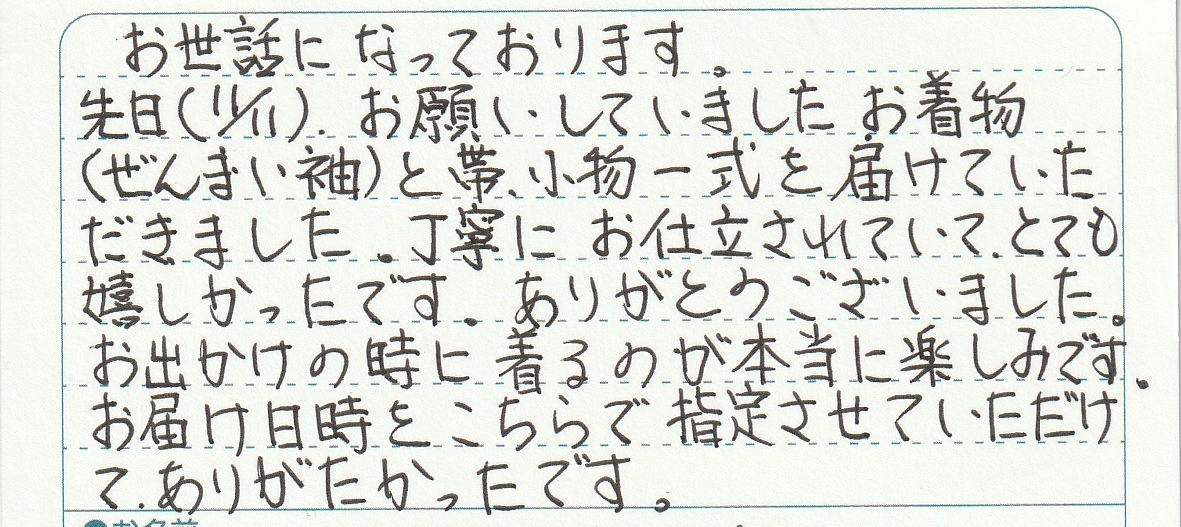 お世話になっております。
先日(11/11)、お願いしていましたお着物
(ぜんまい袖)と帯、小物一式を届けていた
だきました。丁寧にお仕立されていて、とても
嬉しかったです。ありがとうございました。
お出かけの時に着るのが本当に楽しみです。
お届け日時をこちらで指定させていただけ
て、ありがたかったです。
●お名前